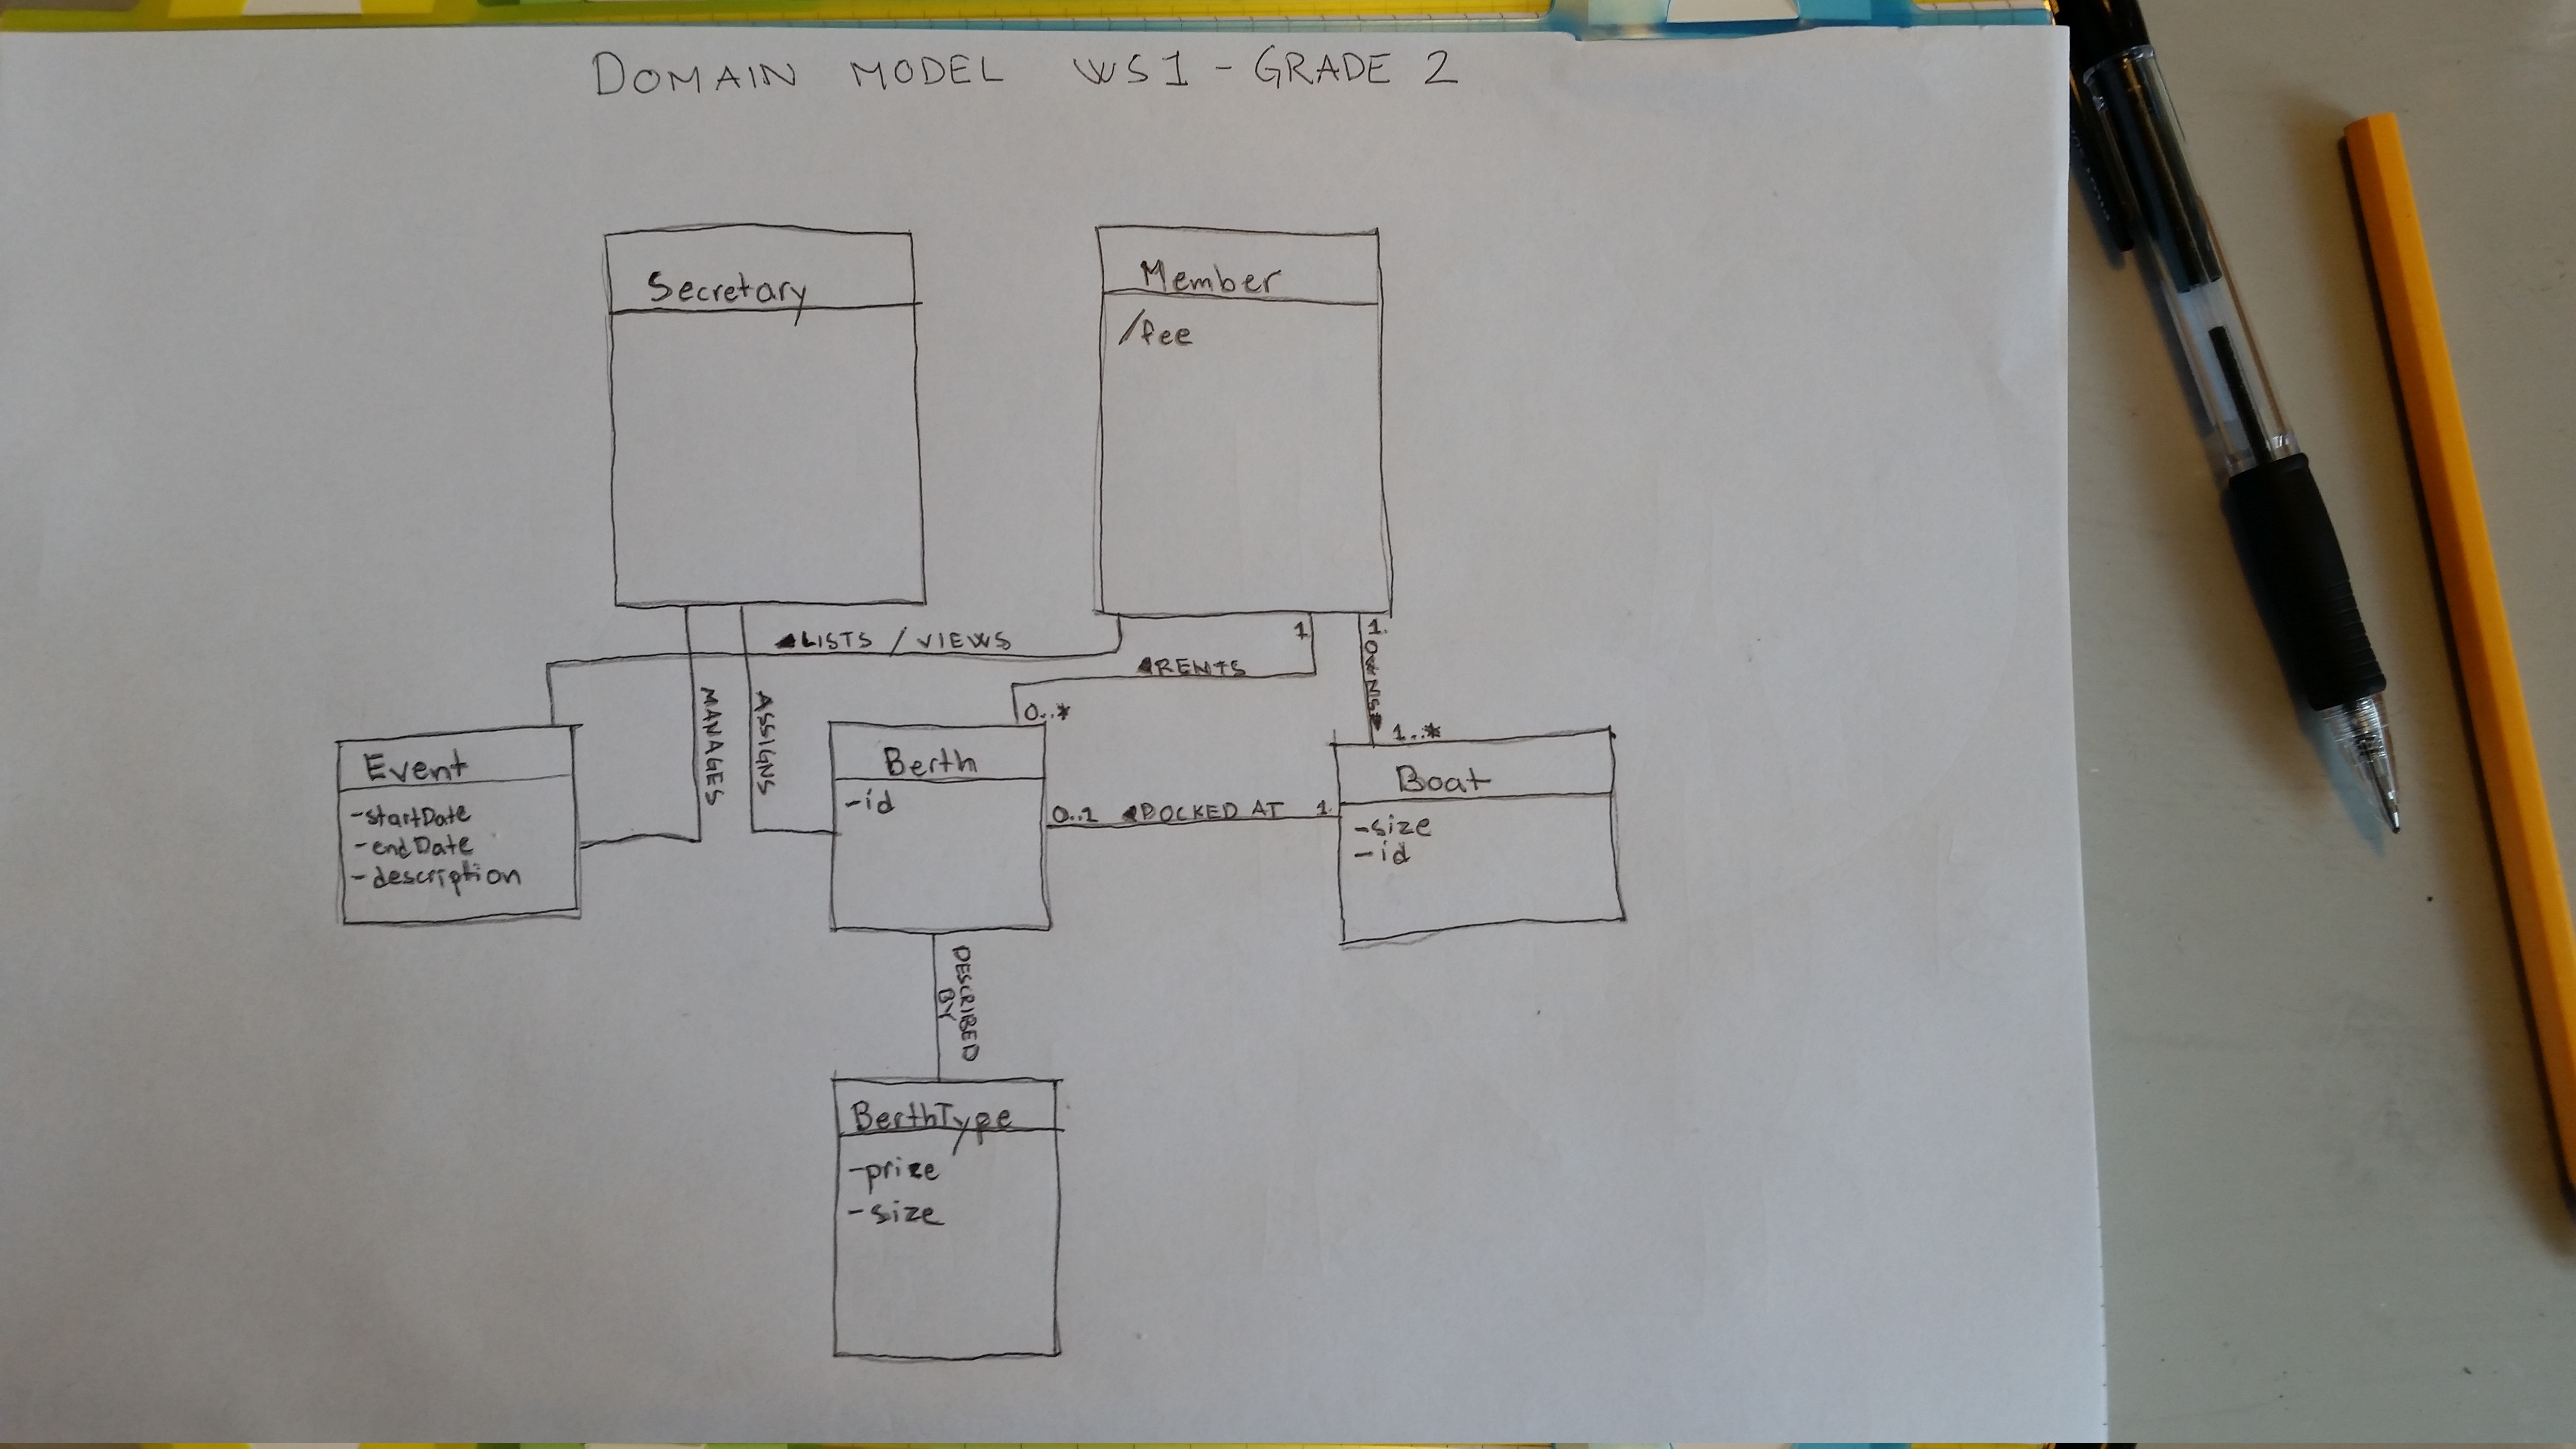 DOMAIN MODEL WS1 - GRADE 2
Secretary
Member
/fee
◄LISTS / VIEWS
1
1.
◄RENTS
OWNS►
MANAGES
ASSIGNS
0..*
1..*
Event
-startDate
-endDate
-description
Berth
-id
0..1 ◄DOCKED AT 1
Boat
-size
-id
DESCRIBED
BY
BerthType
-prize
-size